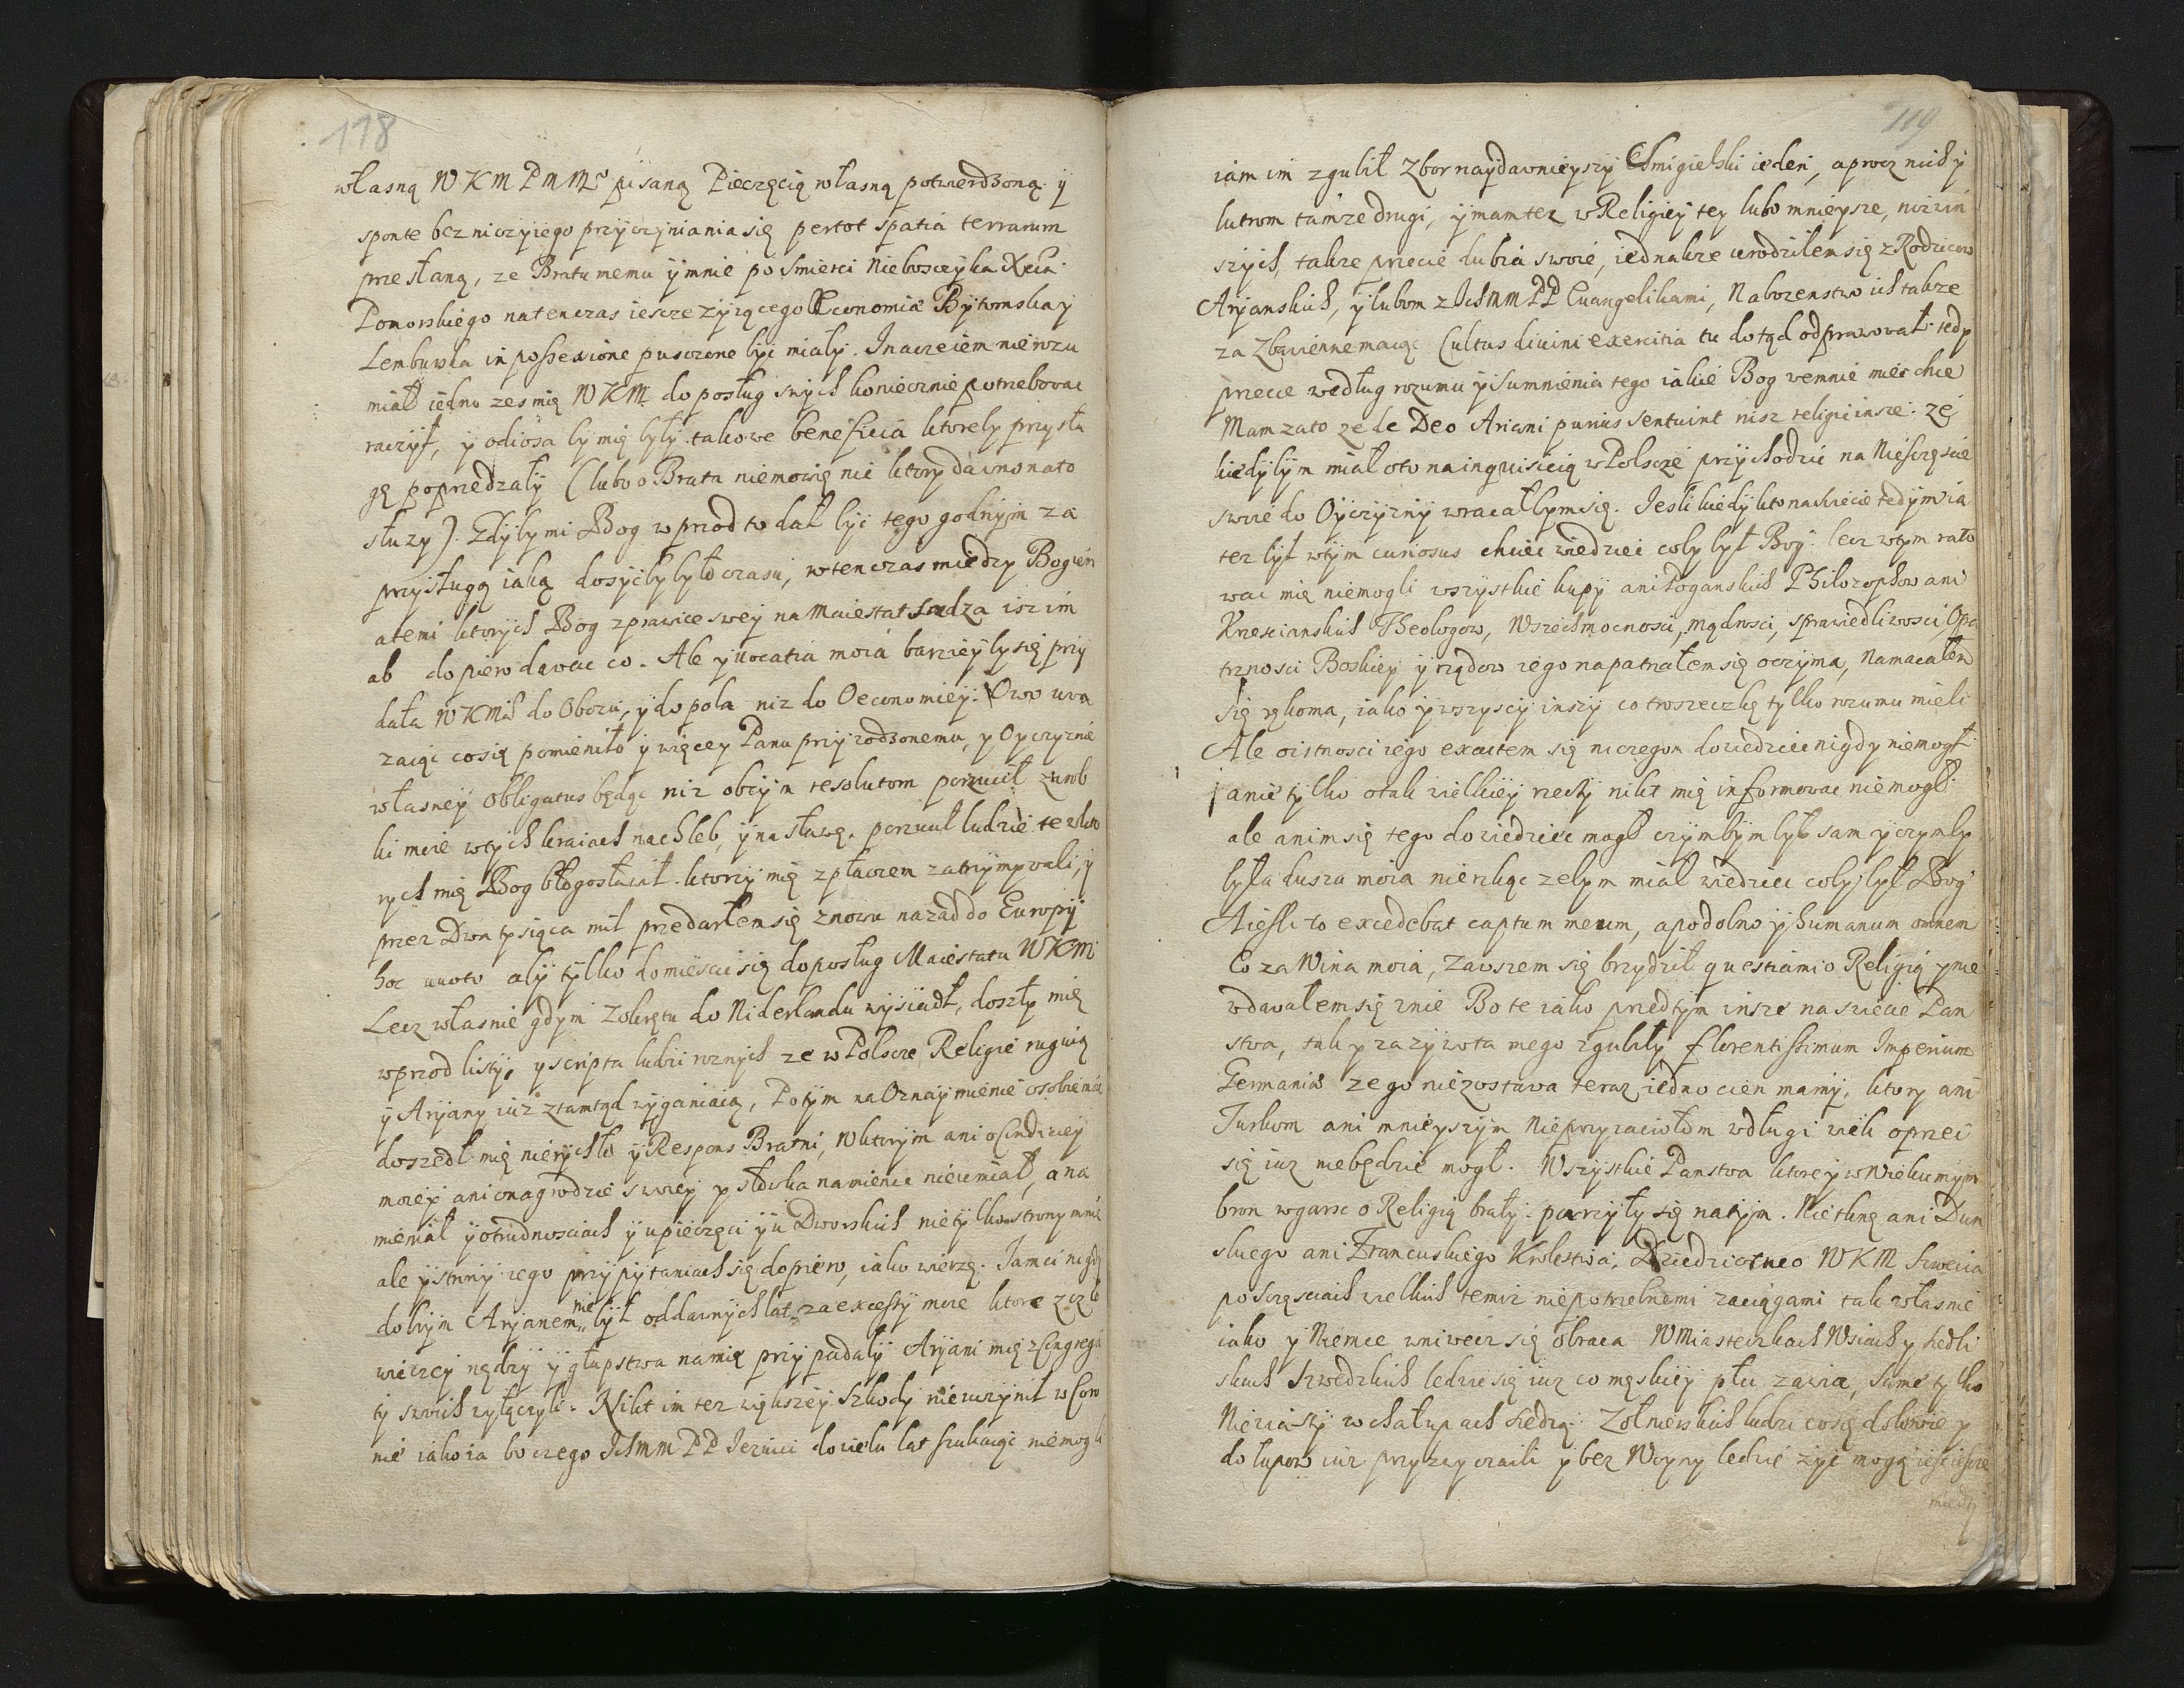 118
własną W K M P M M pisaną Pieczęcią własną potwierdzoną y
sponte bez niczyiego przyczyniania się per tot spatia terrarum
przesłaną, ze Bratu memu y mnie po smierci Nieboszczyka Xcia
Pomorskiego natenczas iescze zyiącego Œconomia Bytomska y
Lemburska in possexione pusczone być miały. Inaczeiem nierozu
miał iedno zes mię W K M. do posług swych koniecznie potrzebowac
raczył, y odiosa by mię były takowe beneficia ktoreby przysłu
gę poprzedzały (lubo o Brata niemowię nie ktory dawno na to
służy). Gdyby mi Bog wprzod to dał być tego godnym za
przysługą iaką dosyćby było czasu, wtenczas miedzy Bogiem
a temi ktorych Bog z prawice swey na Maiestat sadza isz im
ab do piero dawac co. Ale y vocatia moia barziey by się przy
dała W K Mci do Obozu, y do pola niz do Oeconomiey. Owo uwa
zaiąc co się pomieniło y więcey Panu przyrodzonemu, y Oyczyznie
własney obligatus będąc niz obcym resolutom porzucił zarob
ki moie w tych kraiach na chleb, y na sławę. porzucił ludzie te w kto
rych mię Bog błogosławił. ktorzy mię z płaczem zatrzymywali, y
przez Dwa tysiąca mil przedarłem się znowu nazad do Europy
hoc uuoto aby tylko domieścic się do posług Maiestatu W K M
Lecz własnie gdym z okrętu do Niderlandu wysiadł, doszły mię
wprzod listy, y scripta ludzi roznych ze w Polscze Religie ruguią
y Aryany iuz ztamtąd wyganiaią, Potym na Oznaymienie osobie moie
doszedł mię nierychło y Respons Bratni, W ktorym ani o Condiciey
moiey ani o nagrodzie swoiey y słowka namienic nieumiał, a na
mieniał y o trudnosciach y u pieczęci y u Dworskich nie tylko strony mnie
ale y strony iego przypytaniach się dopiero, iako wierzę. Jam ci nigdy
dobrym Aryanem nie był od dawnych lat za excessy moie ktore z czło
wieczey nędzy y głupstwa na mię przypadały Aryani mię z Congrega
ty swoich wyłączyli. Nikt im tez większey szkody nieuczynił w Coro
nie iako ia bo czego Ichmm P P Iezuici do wielu lat szukaiąc niemogli
119
iam im zgubił Zbor naydawnieyszy Smigielski ieden, a procz nich y
lutrom tamze drugi, y mam tez w Religiey tey lubo mnieysze, niz in
szych, takze przecie dubia swoie, iednakze urodziłem się z Rodzicow
Aryanskich, y lubom z Ichmm PP Euangelikami, Nabozenstwo ich takze
za Zbawienne maiąc Cultus diuini exercitia tu dotąd odprawował: tedy
przecie według rozumu y Sumnienia tego iakie Bog wemnie miec chce
Mam za to ze de Deo Ariani purius sentiunt nisz religie insze: ze
kiedybym miał oto na inquisicią w Polscze przychodzic na Niescęscie
swoie do Oyczyzny wracałbym się. Iesli kiedy kto na swiecie tedym ia
tez był w tym curiosus chciec wiedziec coby był Bog: lecz w tym rato
wac mię niemogli wszystkie kupy ani Poganskich Philozophow ani
Krzescianskich Theologow, Wszechmocnosci, mądrosci, sprawiedliwosci, Opa
trznosci Boskiey y rządow iego napatrzałem się oczyma, Namacałem
się rękoma, iako y wszyscy inszy co troszeczkę tylko rozumu mieli
Ale o istnosci iego exactem się niczegom dowiedziec nigdy niemogł
y a nie tylko o tak wielkiey rzeczy nikt mię informowac niemogł.
ale anim się tego dowiedziec mogł czymbym był sam y czymby
była dusza moia nierzkąc zebym miał wiedziec coby był Bog
A iesli to excedebat captum meum, a podobno y humanum omnem
Co za Wina moia, Zawszem się brzydził questiami o Religią y nie
wdawałem się w nie Bo te iako przedtym insze na swiecie Pan
stwa, tak y za zywota mego zgubiły florentissimum Imperium
Germania z ego niezostawa teraz iedno cien mamy, ktory ani
Turkom ani mnieyszym Nieprzyiaciołom w długi wiek oprzec
się iuz niebędzie mogł. Wszystkie Panstwa ktore y w Wieku mym
bron w garsc o Religią brały. parzyły się na tym. Nietknę ani Dun
skiego ani Francuskiego Krolestwa, Dziedzictwo W K M Szwecia
po Scęsciach wielkich temiz niepotrzebnemi zaciągami tak własnie
iako y Niemce wniwecz się obraca W Miasteczkach Wsiach y siedli
skach Szwedzkich ledwie się iuz co męskiey płci zawia, same tylko
Niewiasty w chałupach siedzą. Zołnierskich ludzi co się do woyny
do lupow iuz przyzwyczaili y bez Woyny ledwie zyc mogą iest iescze
miedzy